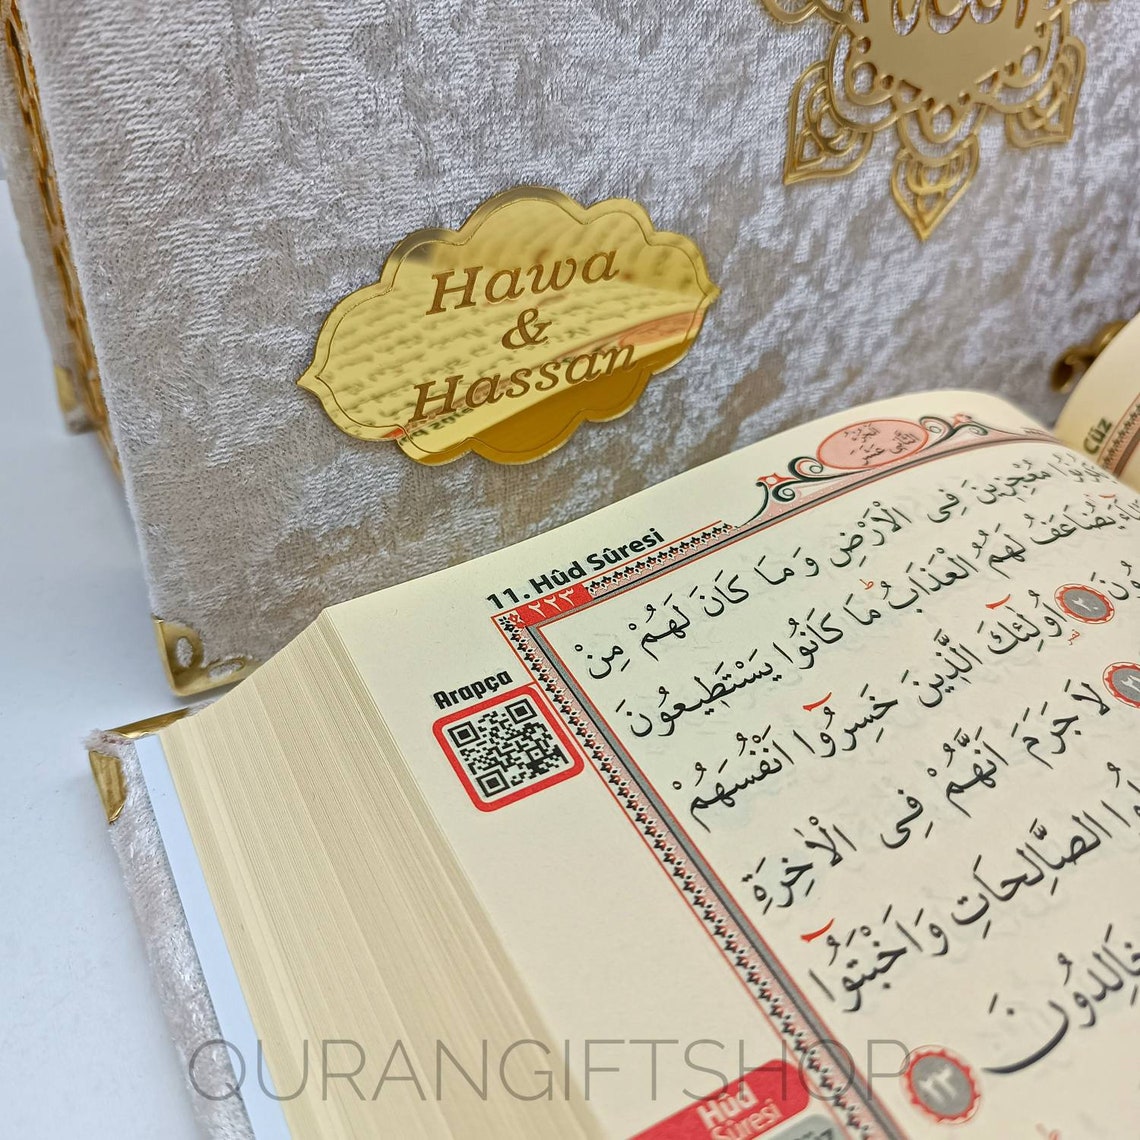 Hawa
&
Hassan
Cüz
الجزء
الثاني عشر
11. Hûd Sûresi
٢٢٣
Arapça
مُعْجِزِينَ فِى الْاَرْضِ وَمَا كَانَ لَهُمْ مِنْ
يُضَاعَفُ لَهُمُ الْعَذَابُ مَا كَانُوا يَسْتَطِيعُونَ
٢٠ اُولٰٓئِكَ الَّذِينَ خَسِرُٓوا اَنْفُسَهُمْ
٢١ لَا جَرَمَ اَنَّهُمْ فِى الْاٰخِرَةِ
الصَّالِحَاتِ وَاَخْبَتُٓوا
خَالِدُونَ
٢٣
Hûd
Sûresi
QURANGIFTSHOP